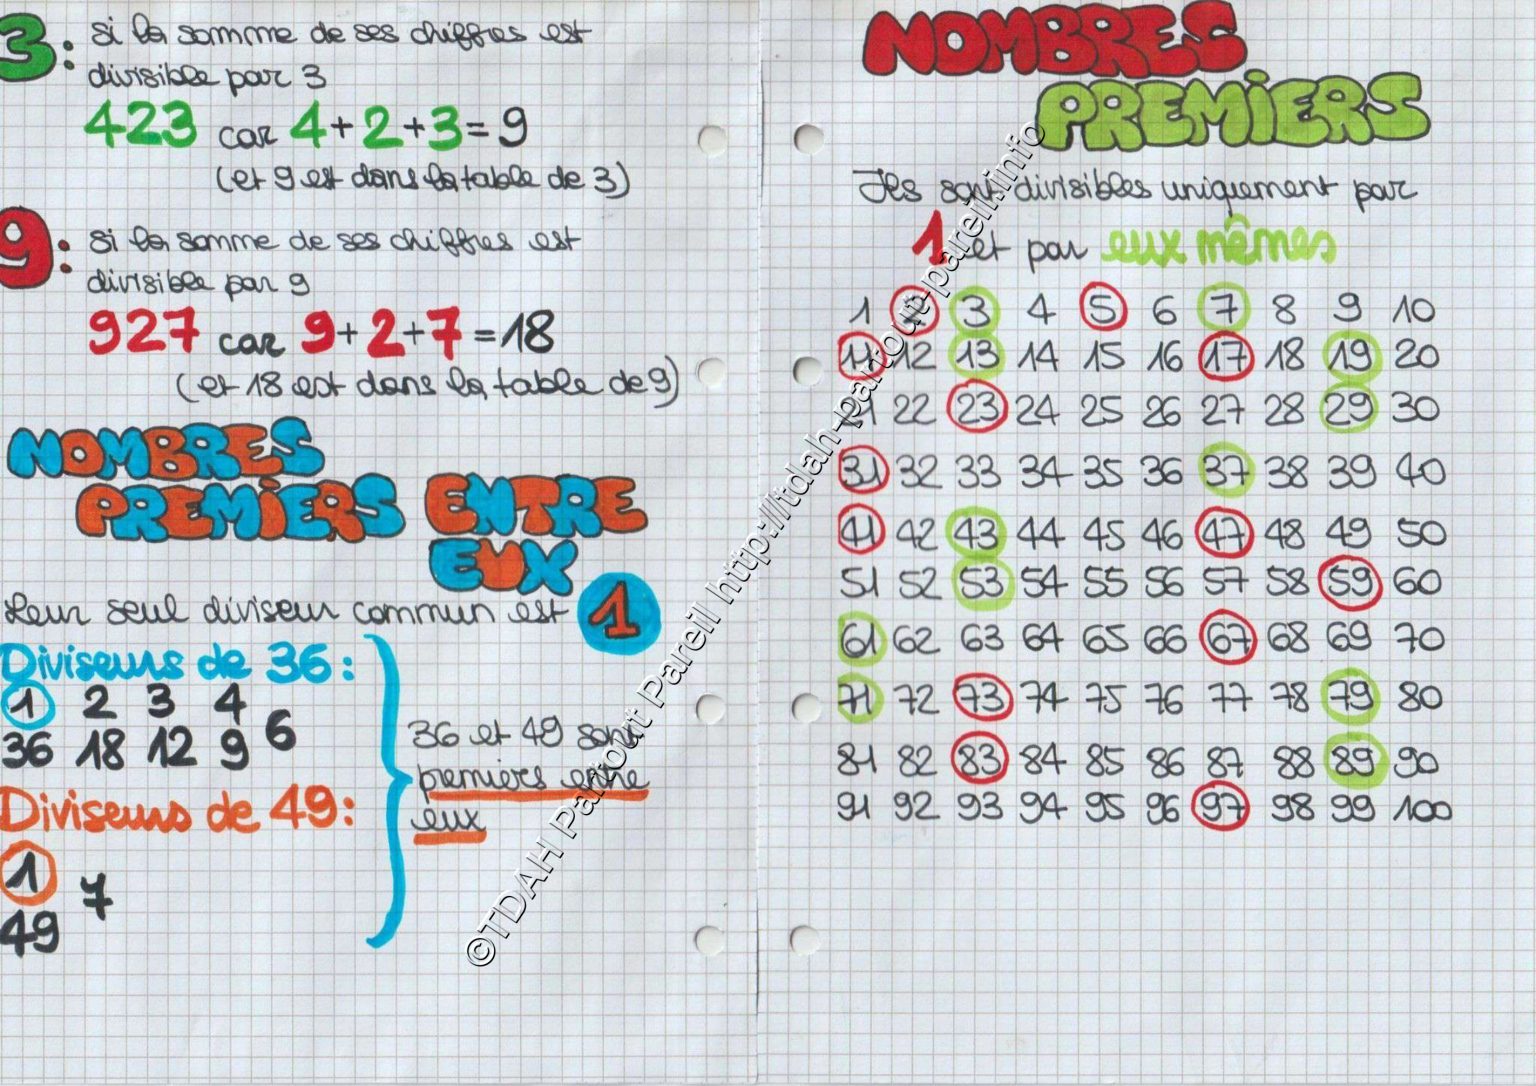 3: si la somme de ses chiffres est
divisible par 3
423 car 4+2+3=9
(et 9 est dans la table de 3)
9: si la somme de ses chiffres est
divisible par 9
927 car 9+2+7=18
(et 18 est dans la table de 9)
NOMBRES
PREMIERS ENTRE
EUX
Leur seul diviseur commun est 1
Diviseurs de 36:
1 2 3 4 6
36 18 12 9
Diviseurs de 49:
1 7
49
36 et 49 sont
premiers entre
eux
NOMBRES
PREMIERS
Ils sont divisibles uniquement par
1 et par eux mêmes
1 2 3 4 5 6 7 8 9 10
11 12 13 14 15 16 17 18 19 20
21 22 23 24 25 26 27 28 29 30
31 32 33 34 35 36 37 38 39 40
41 42 43 44 45 46 47 48 49 50
51 52 53 54 55 56 57 58 59 60
61 62 63 64 65 66 67 68 69 70
71 72 73 74 75 76 77 78 79 80
81 82 83 84 85 86 87 88 89 90
91 92 93 94 95 96 97 98 99 100
©TDAH Partout Pareil http://tdah-partout-pareil.info